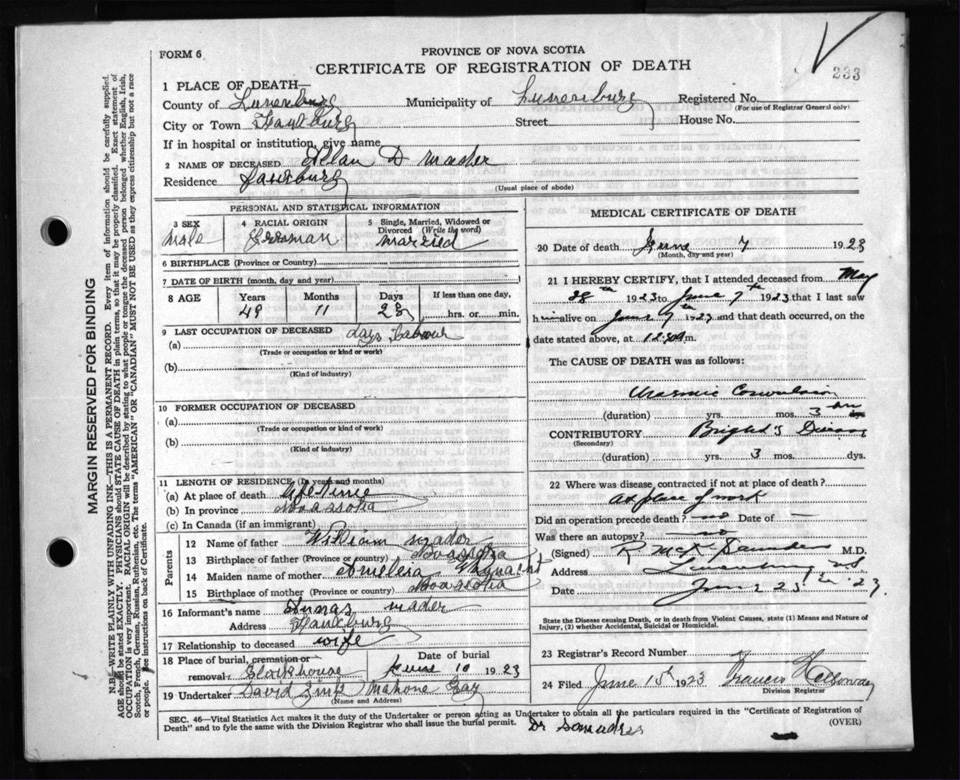 FORM 6
PROVINCE OF NOVA SCOTIA
CERTIFICATE OF REGISTRATION OF DEATH
233
MARGIN RESERVED FOR BINDING
N.B.—WRITE PLAINLY WITH UNFADING INK—THIS IS A PERMANENT RECORD. Every item of information should be carefully supplied.
AGE should be stated EXACTLY. PHYSICIANS should STATE CAUSE OF DEATH in plain terms, so that it may be properly classified. Exact statement of
OCCUPATION is very important. RACIAL ORIGIN will be described by stating to what people or tongue the deceased person belonged whether English, Irish,
Scotch, French, German, Russian, Ruthenian, etc. The terms "AMERICAN" or "CANADIAN" MUST NOT BE USED as they express citizenship but not a race
or people. See instructions on back of Certificate.
1 PLACE OF DEATH
County of Lunenburg Municipality of Lunenburg Registered No.
(For use of Registrar General only)
City or Town Street House No.
If in hospital or institution, give name
2 NAME OF DECEASED Allan D Mader
Residence
(Usual place of abode)
PERSONAL AND STATISTICAL INFORMATION
3 SEX Male
4 RACIAL ORIGIN German
5 Single, Married, Widowed or Divorced (Write the word) Married
6 BIRTHPLACE (Province or Country)
7 DATE OF BIRTH (month, day and year)
8 AGE Years 49 Months 11 Days 28 If less than one day, hrs. or min.
9 LAST OCCUPATION OF DECEASED
(a) days Labour
(Trade or occupation or kind or work)
(b)
(Kind of industry)
10 FORMER OCCUPATION OF DECEASED
(a)
(Trade or occupation or kind of work)
(b)
(Kind of industry)
11 LENGTH OF RESIDENCE (In years and months)
(a) At place of death life time
(b) In province Nova Scotia
(c) In Canada (if an immigrant)
Parents
12 Name of father William Mader
13 Birthplace of father (Province or country) Nova Scotia
14 Maiden name of mother
15 Birthplace of mother (Province or country) Nova Scotia
16 Informant's name Mader
Address
17 Relationship to deceased wife
18 Place of burial, cremation or removal. Blockhouse Date of burial June 10 1923
19 Undertaker David Zink Mahone Bay
(Name and Address)
MEDICAL CERTIFICATE OF DEATH
20 Date of death June 7 1923
(Month, day and year)
21 I HEREBY CERTIFY, that I attended deceased from May
28th 1923 to June 7th 1923 that I last saw
him alive on June 7th 1923 and that death occurred, on the
date stated above, at m.
The CAUSE OF DEATH was as follows:
Uraemic Convulsion
(duration) yrs. mos. 3
CONTRIBUTORY Bright's Disease
(Secondary)
(duration) yrs. 3 mos. dys.
22 Where was disease contracted if not at place of death?
at place of work
Did an operation precede death? no Date of —
Was there an autopsy? no
(Signed) R McK Saunders M.D.
Address Lunenburg NS
Date June 23 23
State the Disease causing Death, or in death from Violent Causes, state (1) Means and Nature of
Injury, (2) whether Accidental, Suicidal or Homicidal.
23 Registrar's Record Number
24 Filed June 15th 1923 Francis
Division Registrar
SEC. 46—Vital Statistics Act makes it the duty of the Undertaker or person acting as Undertaker to obtain all the particulars required in the "Certificate of Registration of
Death" and to fyle the same with the Division Registrar who shall issue the burial permit.
Dr Saunders
(OVER)